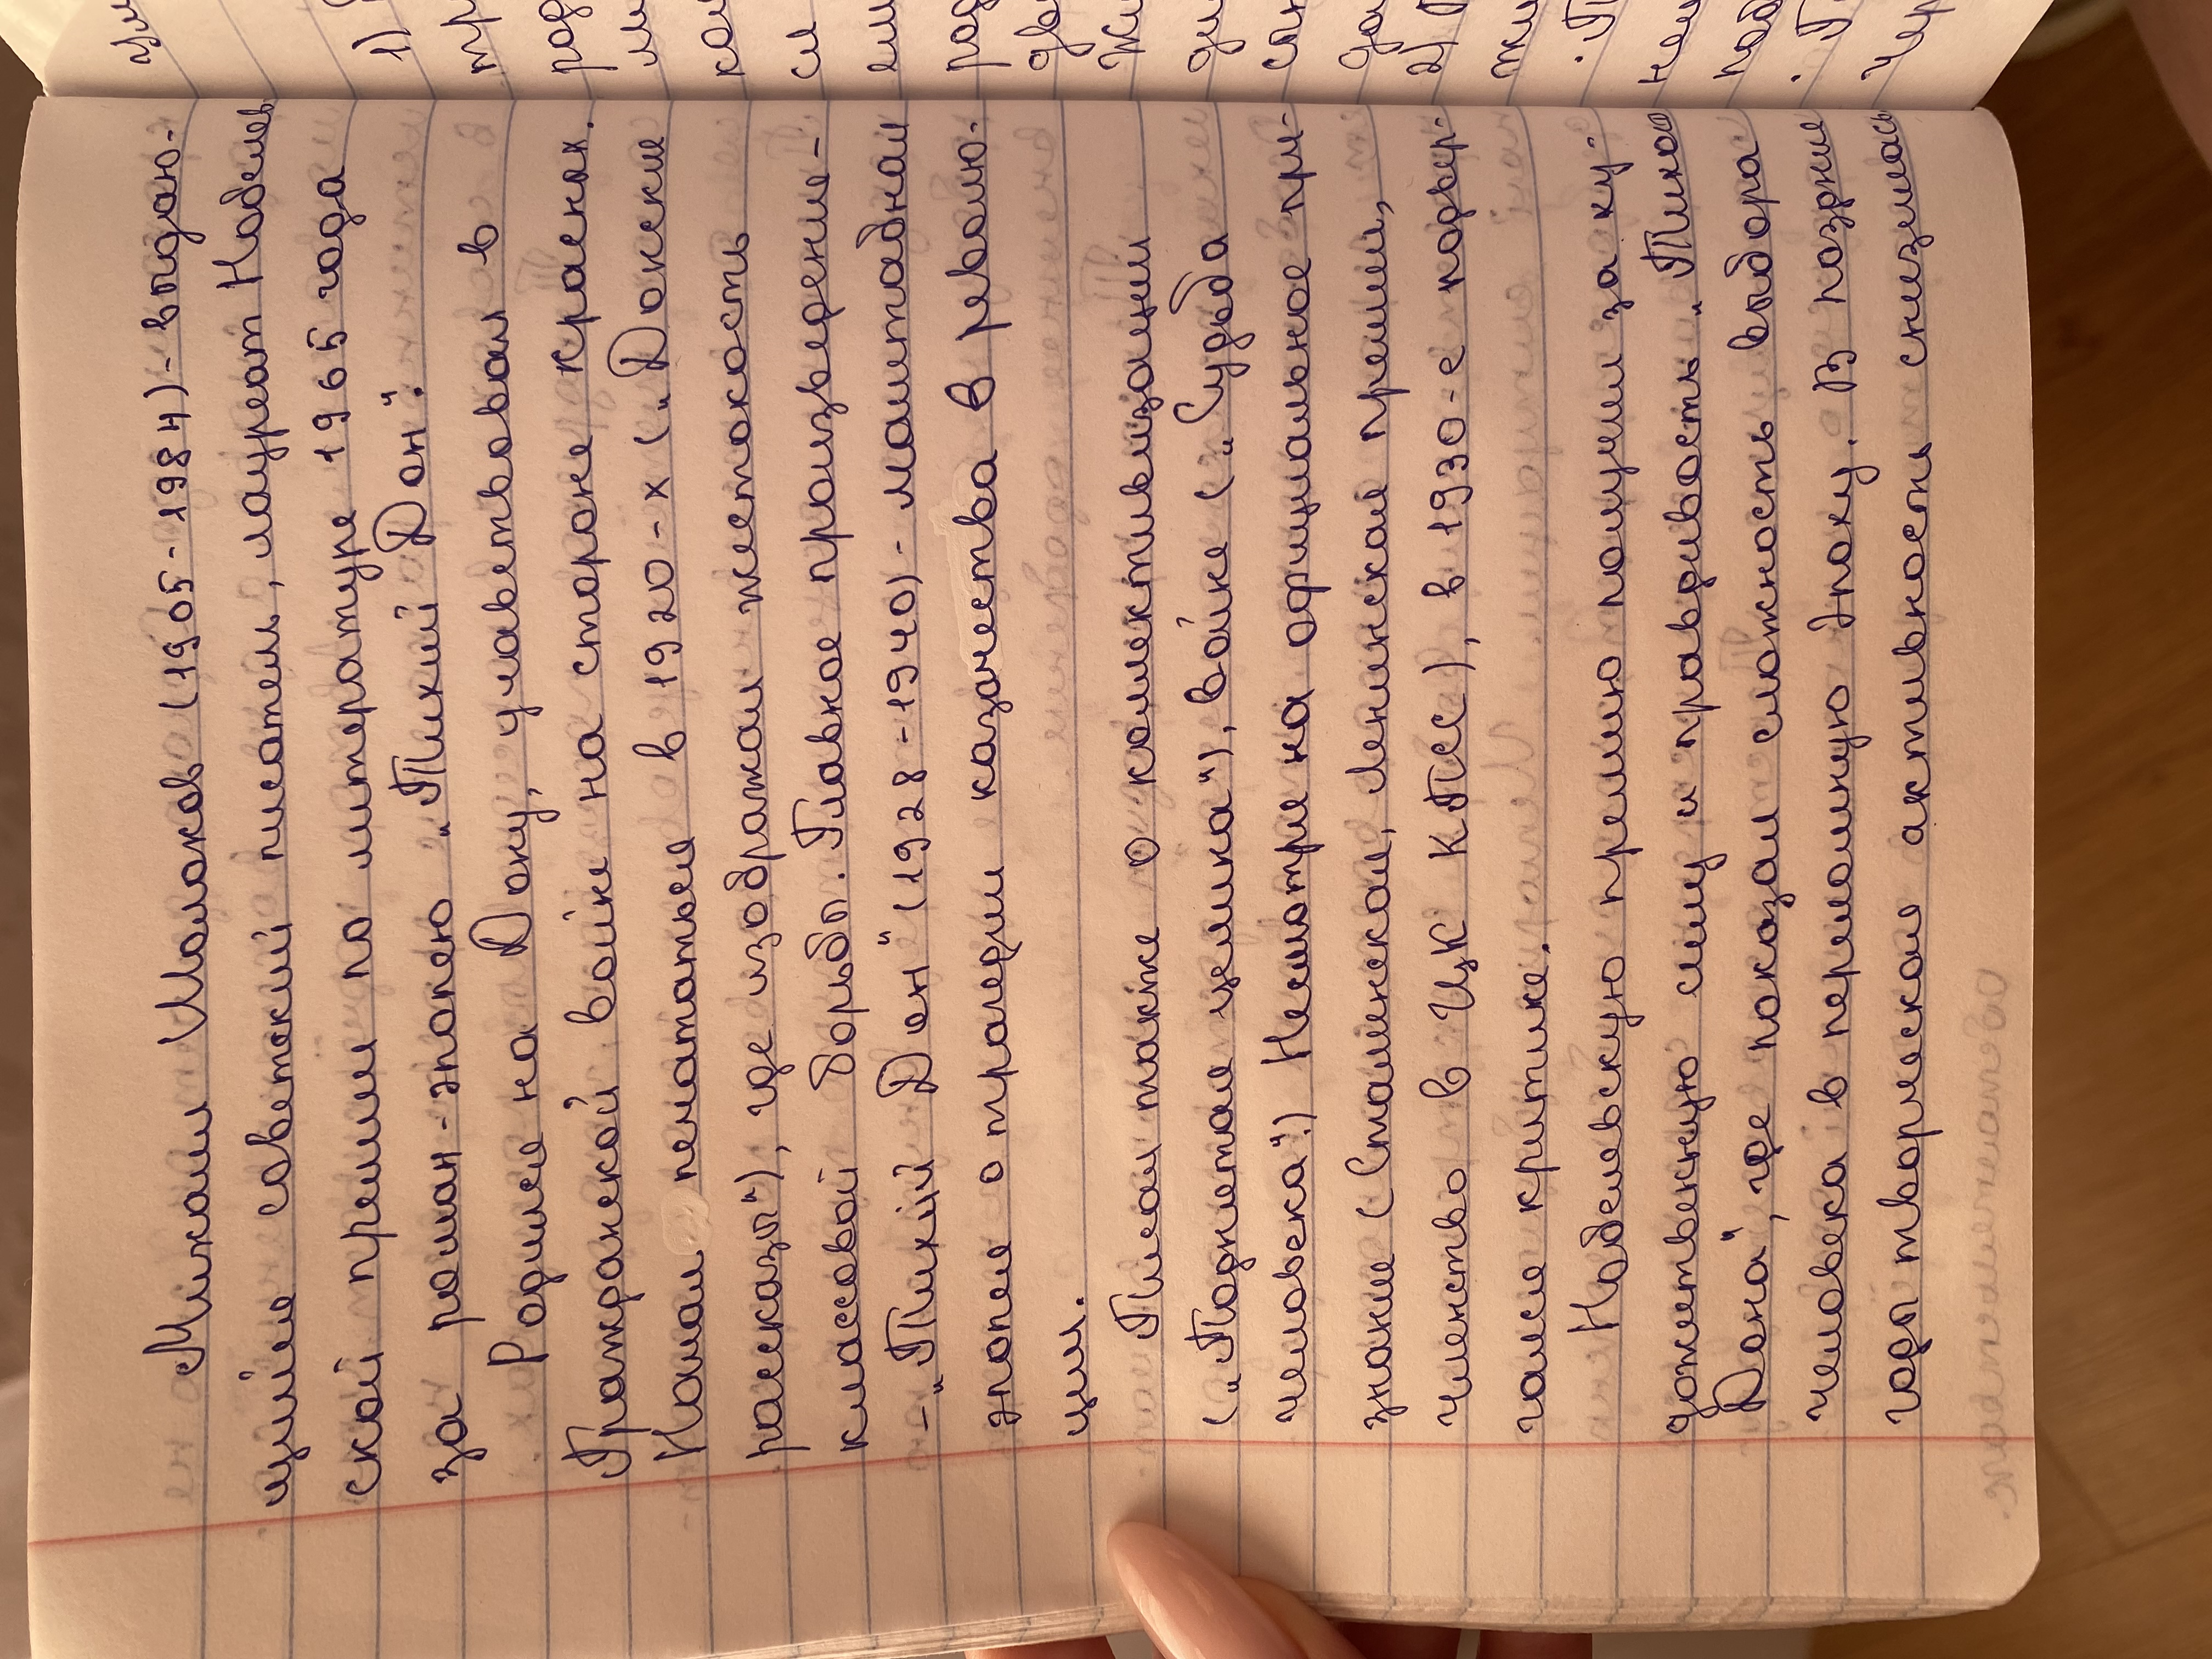 Михаил Шолохов (1905-1984) - выдаю-
щийся советский писатель, лауреат Нобелев
ской премии по литературе 1965 года
за роман-эпопею „Тихий Дон".
Родился на Дону, участвовал в
Гражданской войне на стороне красных.
Начал печататься в 1920-х („Донские
рассказы"), где изображал жестокость
классовой борьбы. Главное произведение-
-„Тихий Дон" (1928-1940) - масштабная
эпопея о трагедии казачества в револю-
ции.
Писал также о коллективизации
(„Поднятая целина"), войне („Судьба
человека".) Несмотря на официальное при-
знание (Сталинская, Ленинская премии,
членство в ЦК КПСС), в 1930-е подвер-
гался критике.
Нобелевскую премию получил за ху-
дожественную силу и правдивость „Тихого
Дона", где показал сложность выбора
человека в переломную эпоху. В поздние
годы творческая активность снизилась
1)
2)